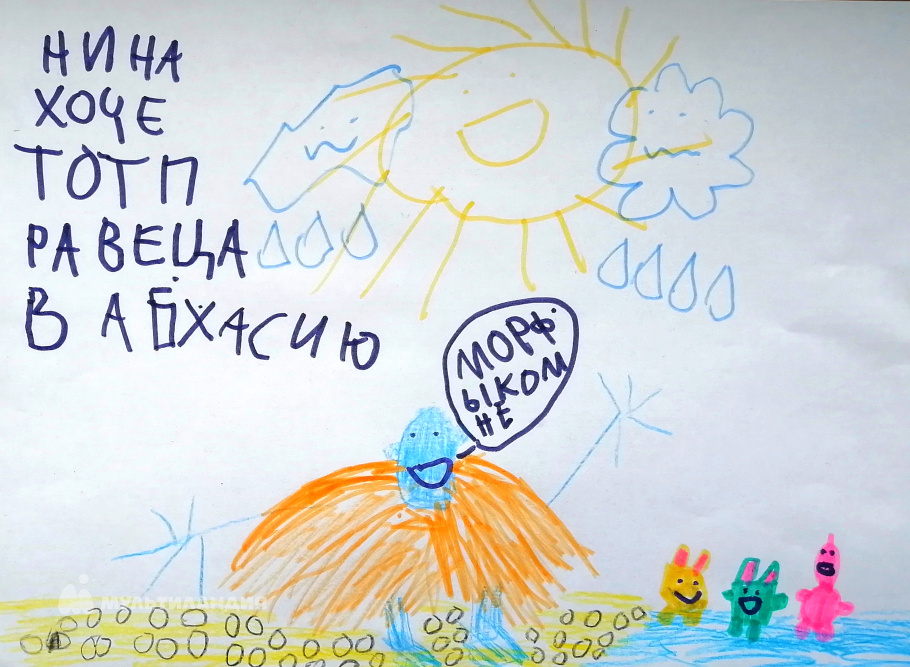 НИНА
ХОЧЕ
ТОТП
РАВЕЦА
В АБХАСИЮ
МОРФ
ЫКОМ
НЕ
МУЛЬТИЛАНДИЯ